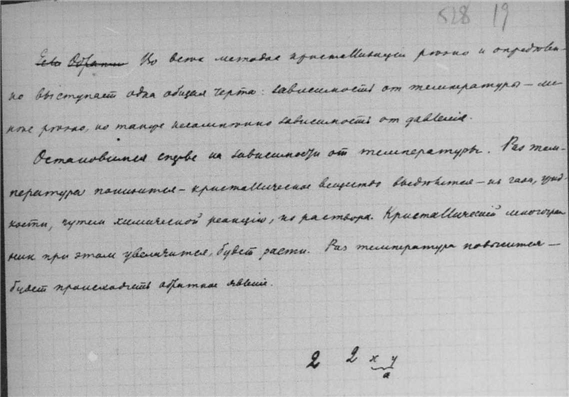 528 19
Во всех методах кристаллизации резко и определен-
но выступает одна общая черта: зависимость от температуры – ме-
нее резко, но также несомненно зависимость от давления.
Остановимся сперва на зависимости от температуры. Раз тем-
пература понизится – кристаллическое вещество выделяется – из газа, жид-
кости, путем химической реакции, из раствора. Кристаллический многогран-
ник при этом увеличится, будет расти. Раз температура повысится –
будет происходить обратное явление.
2 2 x y
a